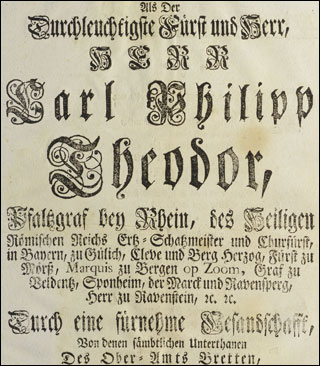 Als Der
Durchleuchtigste Fürst und Herr,
HERR
Carl Philipp
Theodor,
Pfaltzgraf bey Rhein, des Heiligen
Römischen Reichs Ertz-Schatzmeister und Churfürst,
in Bayern, zu Gülich, Cleve und Berg Herzog, Fürst zu
Mörß, Marquis zu Bergen op Zoom, Graf zu
Veldentz, Sponheim, der Marck und Ravensperg,
Herr zu Ravenstein, ꝛc. ꝛc.
Durch eine fürnehme Gesandschafft,
Von denen sämbtlichen Unterthanen
Des Ober-Amts Bretten,